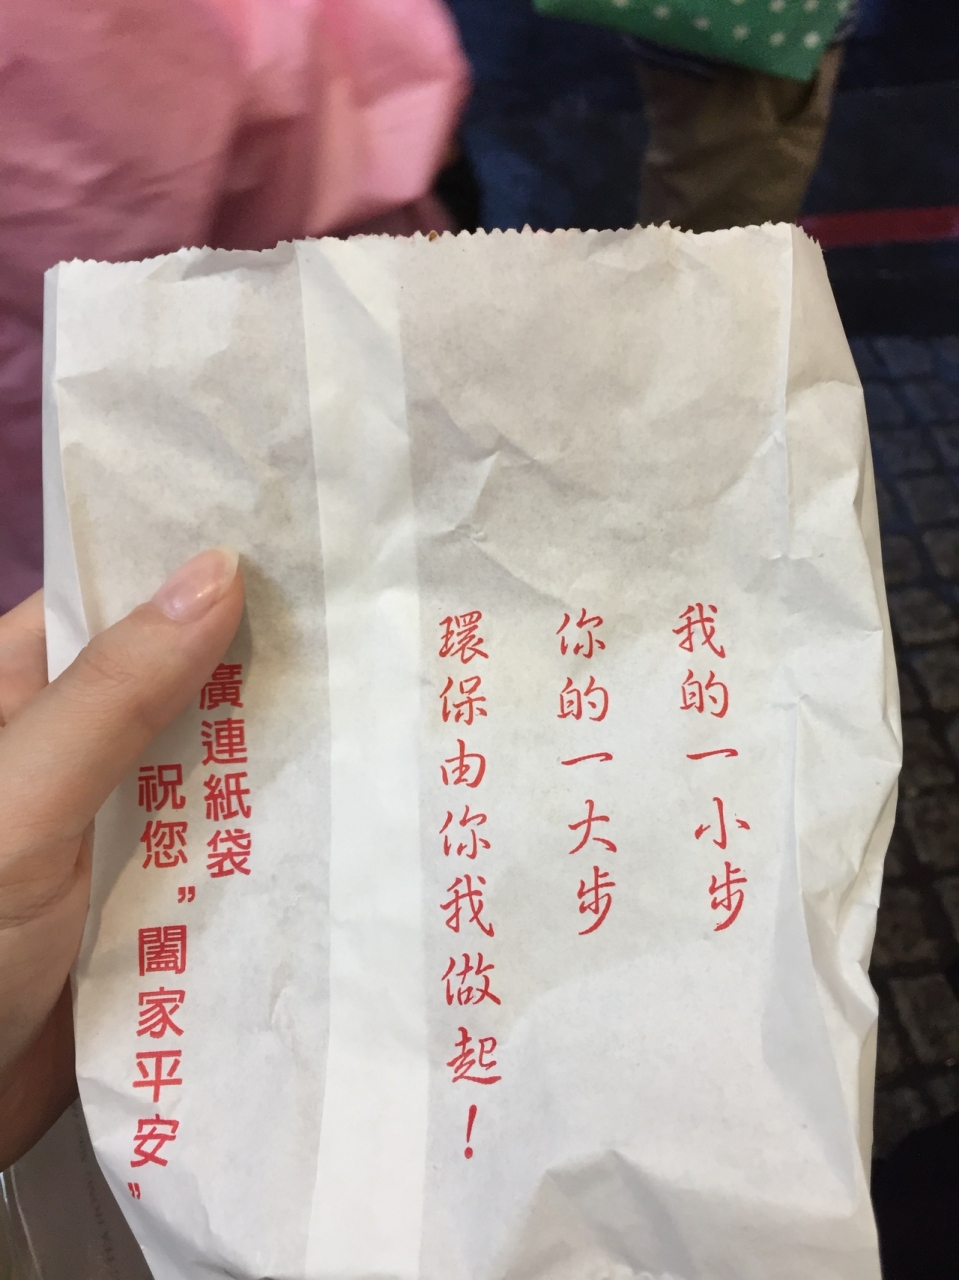 我的一小步
你的一大步
環保由你我做起！
廣連紙袋
祝您”闔家平安”